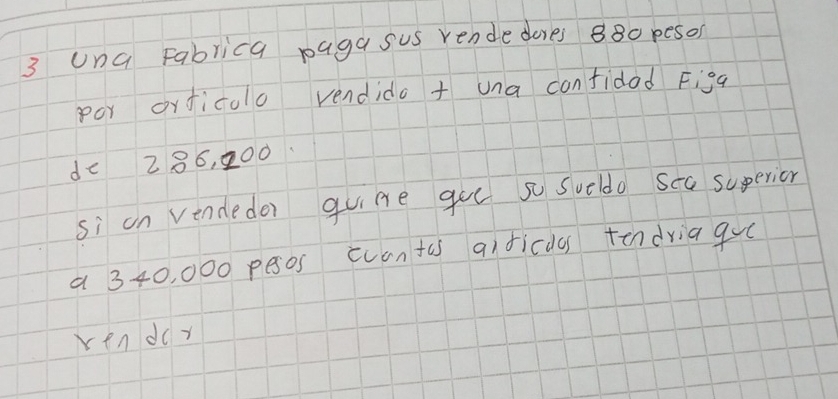 3 una Fabrica paga sus vendedores 880 pesos
por articulo vendido + una cantidad Figa
de 286,200.
si un vendedor quiere que su sueldo sea superior
a 340.000 pesos cuantos articulos tendria que
vender